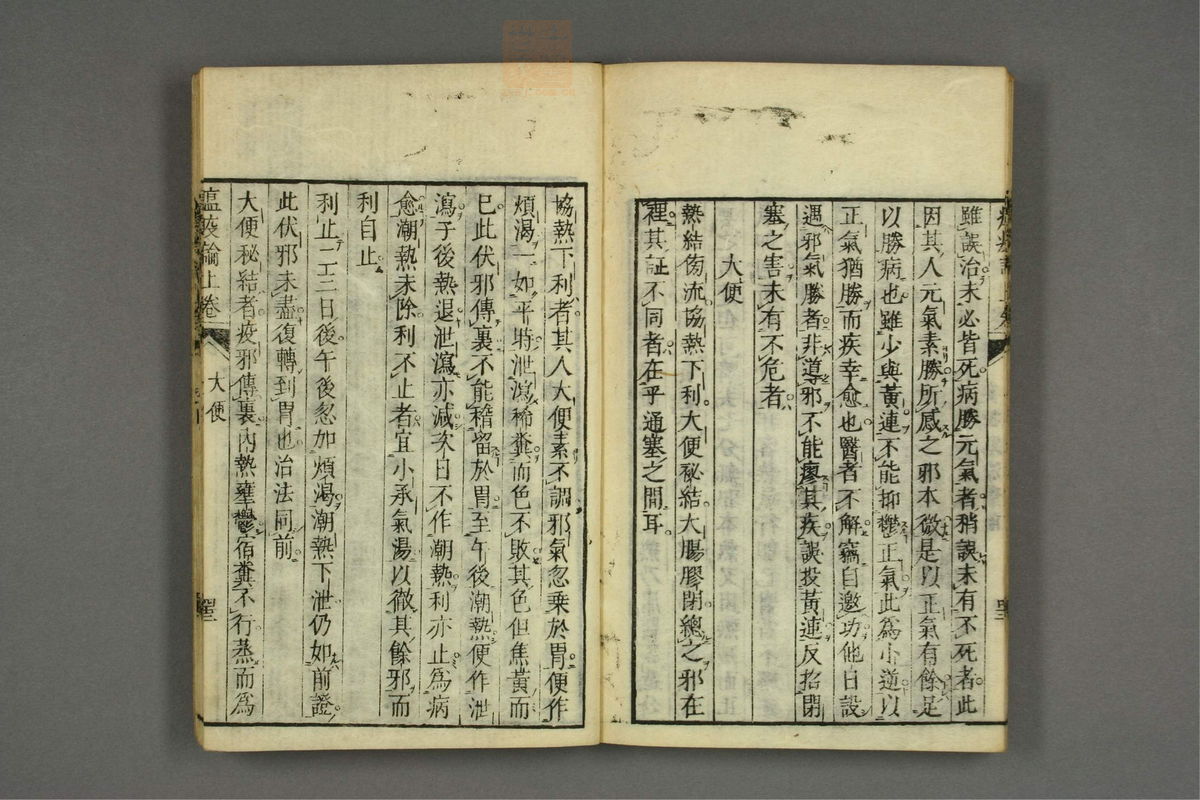 雖誤治未必皆死病勝元氣者稍誤未有不死者此
因其人元氣素勝所感之邪本微是以正氣有餘足
以勝病也雖少與黃連不能抑鬱正氣此為小逆以
正氣猶勝而疾幸愈也醫者不解竊自邀功他日設
遇邪氣勝者非導邪不能瘳其疾誤投黃連反招閉
塞之害未有不危者
大便
熱結傍流協熱下利大便秘結大腸膠閉總之邪在
裡其証不同者在乎通塞之間耳
協熱下利者其人大便素不調邪氣忽乘於胃便作
煩渴一如平時泄瀉稀糞而色不敗其色但焦黃而
已此伏邪傳裏不能稽留於胃至午後潮熱便作泄
瀉子後熱退泄瀉亦減次日不作潮熱利亦止為病
愈潮熱未除利不止者宜小承氣湯以徹其餘邪而
利自止
利止二三日後午後忽加煩渴潮熱下泄仍如前證
此伏邪未盡復轉到胃也治法同前
大便秘結者疫邪傳裏內熱壅鬱宿糞不行蒸而為
瘟疫論上卷
大便